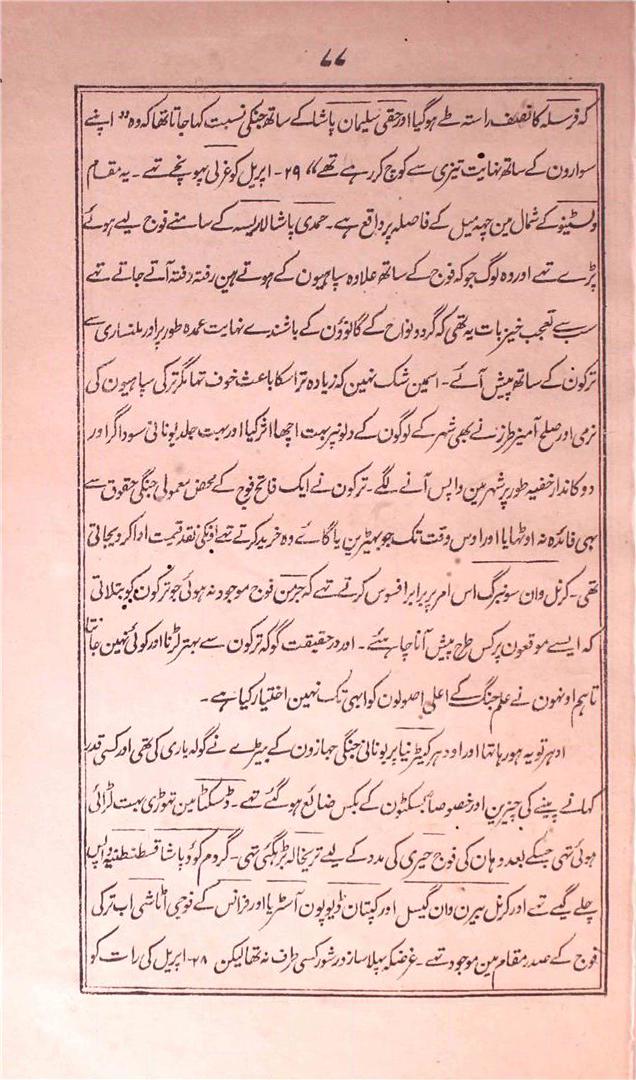 ۷۷
کہ فرسلہ کا نصف راستہ طے ہوگیا اور حقی سلیمان پاشا کے ساتھ جنکی نسبت کہا جاتا تھا کہ وہ ”اپنے
سوارون کے ساتھ نہایت تیزی سے کوچ کر رہے تھے“ ۲۹- اپریل کو غرلی پہونچے تھے - یہ مقام
ولسٹینو کے شمال مین چہہ میل کے فاصلہ پر واقع ہے - حمدی پاشا لاریسہ کے سامنے فوج لیے ہوئے
پڑے تھے اور وہ لوگ جو کہ فوج کے ساتھ علاوہ سپاہیون کے ہوتے ہین رفتہ رفتہ آتے جاتے تھے
سب سے تعجب خیز بات یہ تھی کہ گرد و نواح کے گانوؤن کے باشندے نہایت عمدہ طور پر اور ملنساری سے
ترکون کے ساتھ پیش آئے - اسمین شک نہین کہ زیادہ تر اسکا باعث خوف تھا مگر ترکی سپاہیون کی
نرمی اور صلح آمیز طرز نے بھی شہر کے لوگون کے دلونپر بہت اچھا اثر کیا اور بہت جلد یونانی سوداگر اور
دوکاندار خفیہ طور پر شہر مین واپس آنے لگے - ترکون نے ایک فاتح فوج کے محض معمولی جنگی حقوق سے
بہی فائدہ نہ اوٹھایا اور اوس وقت تک جو بھیڑین یا گائے وہ خرید کرتے تھے اونکی نقد قیمت ادا کر دیجاتی
تھی - کرنل وان سونبرگ اس امر پر برابر افسوس کرتے تھے کہ جرمن فوج موجود نہ ہوئی جو ترکون کو بتلاتی
کہ ایسے موقعون پر کس طرح پیش آنا چاہیئے - اور درحقیقت گو کہ ترکون سے بہتر لڑنا اور کوئی نہین جانتا
تاہم اونہون نے علم جنگ کے اعلی اصولون کو ابھی تک نہین اختیار کیا ہے -
ادہر تو یہ ہو رہا تھا اور اودہر کیٹرنیا پر یونانی جنگی جہازون کے بیڑے نے گولہ باری کی تھی اور کسی قدر
کھانے پینے کی چیزین اور خصوصاً بسکٹون کے بکس ضائع ہو گئے تھے - ڈسکٹا مین تھوڑی بہت لڑائی
ہوئی تھی جسکے بعد وہان کی فوج حیری کی مدد کے لیے تریخالہ بڑہ گئی تھی - گرومکوؤ پاشا قسطنطنیہ واپس
چلے گیے تھے اور کرنل بیرن وان گیسل اور کپتان ڈیوپون آسٹریا اور فرانس کے فوجی اٹاشی اب ترکی
فوج کے صدر مقام مین موجود تھے - غرضکہ پہلا سا زور شور کسی طرف نہ تھا لیکن ۲۸- اپریل کی رات کو